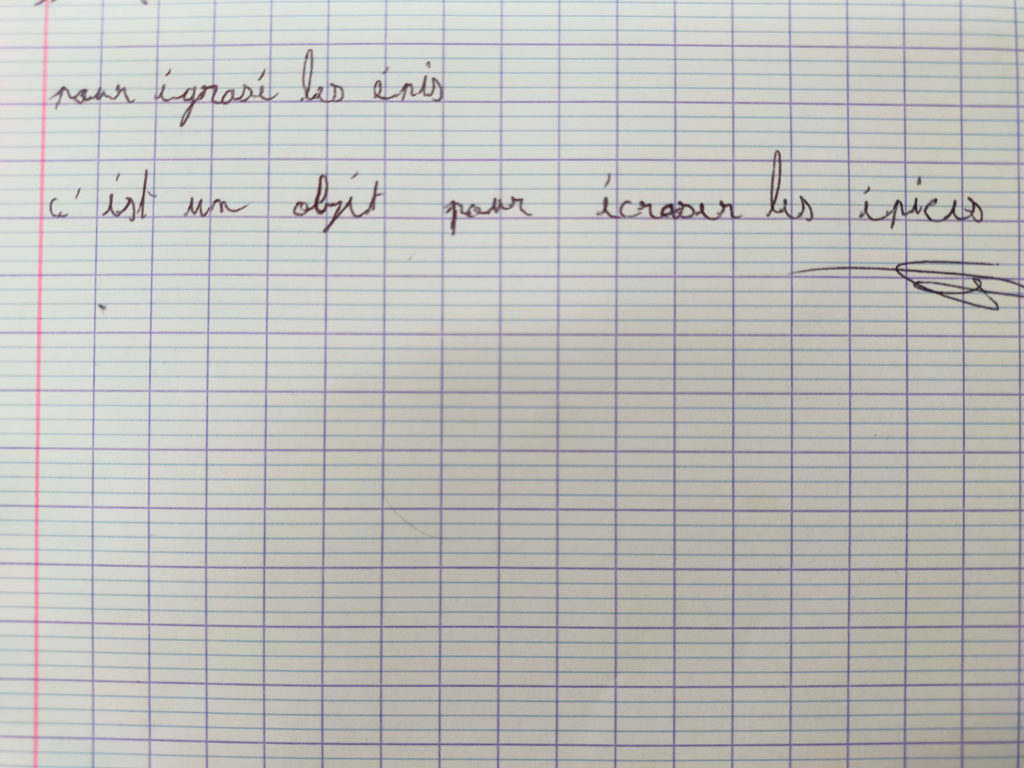 pour égrasé les épis
c'est un objet pour écraser les épices